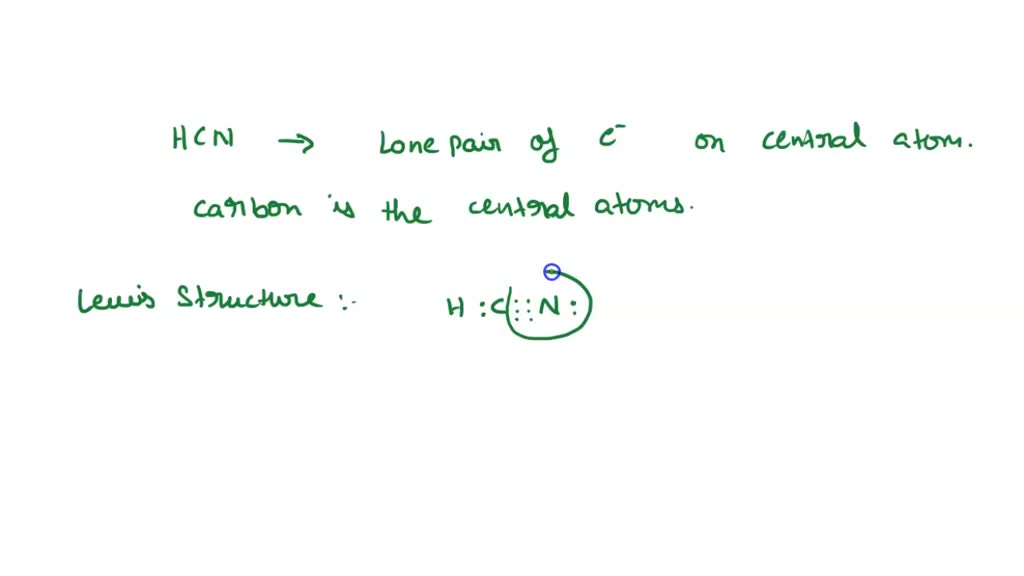 HCN → Lone pair of e⁻ on central atom.
carbon is the central atoms.
Lewis Structure :- H :C ⋮⋮ N :